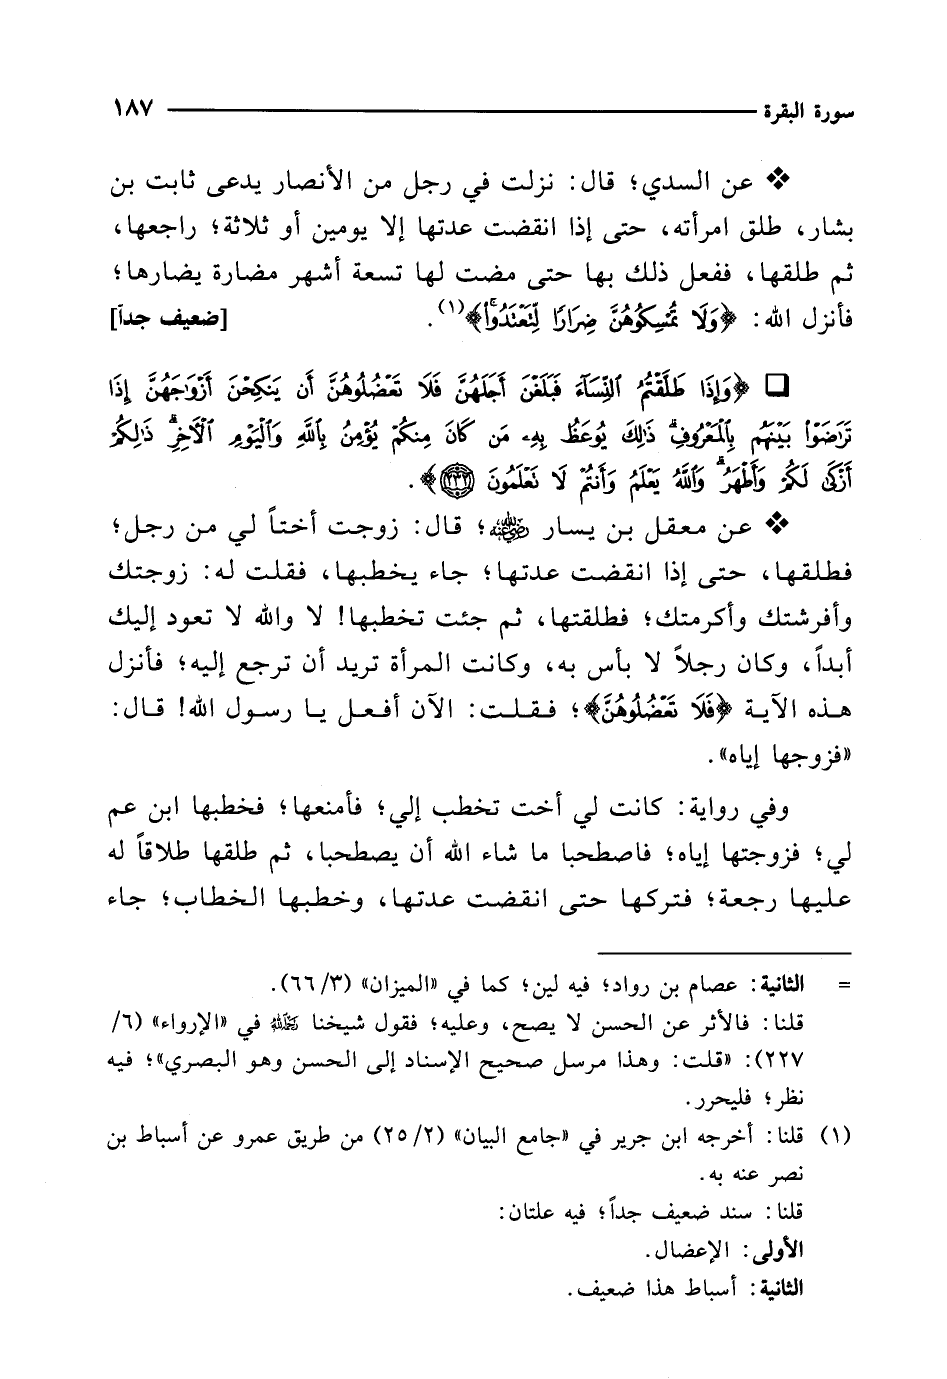 سورة البقرة ١٨٧
❖ عن السدي؛ قال: نزلت في رجل من الأنصار يدعى ثابت بن
بشار، طلق امرأته، حتى إذا انقضت عدتها إلا يومين أو ثلاثة؛ راجعها،
ثم طلقها، ففعل ذلك بها حتى مضت لها تسعة أشهر مضارة يضارها؛
فأنزل الله: ﴿وَلَا تُمْسِكُوهُنَّ ضِرَارًا لِّتَعْتَدُواْ﴾(١). [ضعيف جداً]
❑ ﴿وَإِذَا طَلَّقْتُمُ ٱلنِّسَآءَ فَبَلَغْنَ أَجَلَهُنَّ فَلَا تَعْضُلُوهُنَّ أَن يَنكِحْنَ أَزْوَٰجَهُنَّ إِذَا
تَرَٰضَوْاْ بَيْنَهُم بِٱلْمَعْرُوفِ ۗ ذَٰلِكَ يُوعَظُ بِهِۦ مَن كَانَ مِنكُمْ يُؤْمِنُ بِٱللَّهِ وَٱلْيَوْمِ ٱلْآخِرِ ۗ ذَٰلِكُمْ
أَزْكَىٰ لَكُمْ وَأَطْهَرُ ۗ وَٱللَّهُ يَعْلَمُ وَأَنتُمْ لَا تَعْلَمُونَ ﴿٢٣٢﴾﴾.
❖ عن معقل بن يسار رضي الله عنه؛ قال: زوجت أختاً لي من رجل؛
فطلقها، حتى إذا انقضت عدتها؛ جاء يخطبها، فقلت له: زوجتك
وأفرشتك وأكرمتك؛ فطلقتها، ثم جئت تخطبها! لا والله لا تعود إليك
أبداً، وكان رجلاً لا بأس به، وكانت المرأة تريد أن ترجع إليه؛ فأنزل
هذه الآية ﴿فَلَا تَعْضُلُوهُنَّ﴾؛ فقلت: الآن أفعل يا رسول الله! قال:
«فزوجها إياه».
وفي رواية: كانت لي أخت تخطب إلي؛ فأمنعها؛ فخطبها ابن عم
لي؛ فزوجتها إياه؛ فاصطحبا ما شاء الله أن يصطحبا، ثم طلقها طلاقاً له
عليها رجعة؛ فتركها حتى انقضت عدتها، وخطبها الخطاب؛ جاء
= الثانية: عصام بن رواد؛ فيه لين؛ كما في «الميزان» (٣/ ٦٦).
قلنا: فالأثر عن الحسن لا يصح، وعليه؛ فقول شيخنا رحمه الله في «الإرواء» (٦/
٢٢٧): «قلت: وهذا مرسل صحيح الإسناد إلى الحسن وهو البصري»؛ فيه
نظر؛ فليحرر.
(١) قلنا: أخرجه ابن جرير في «جامع البيان» (٢/ ٢٥) من طريق عمرو عن أسباط بن
نصر عنه به.
قلنا: سند ضعيف جداً؛ فيه علتان:
الأولى: الإعضال.
الثانية: أسباط هذا ضعيف.